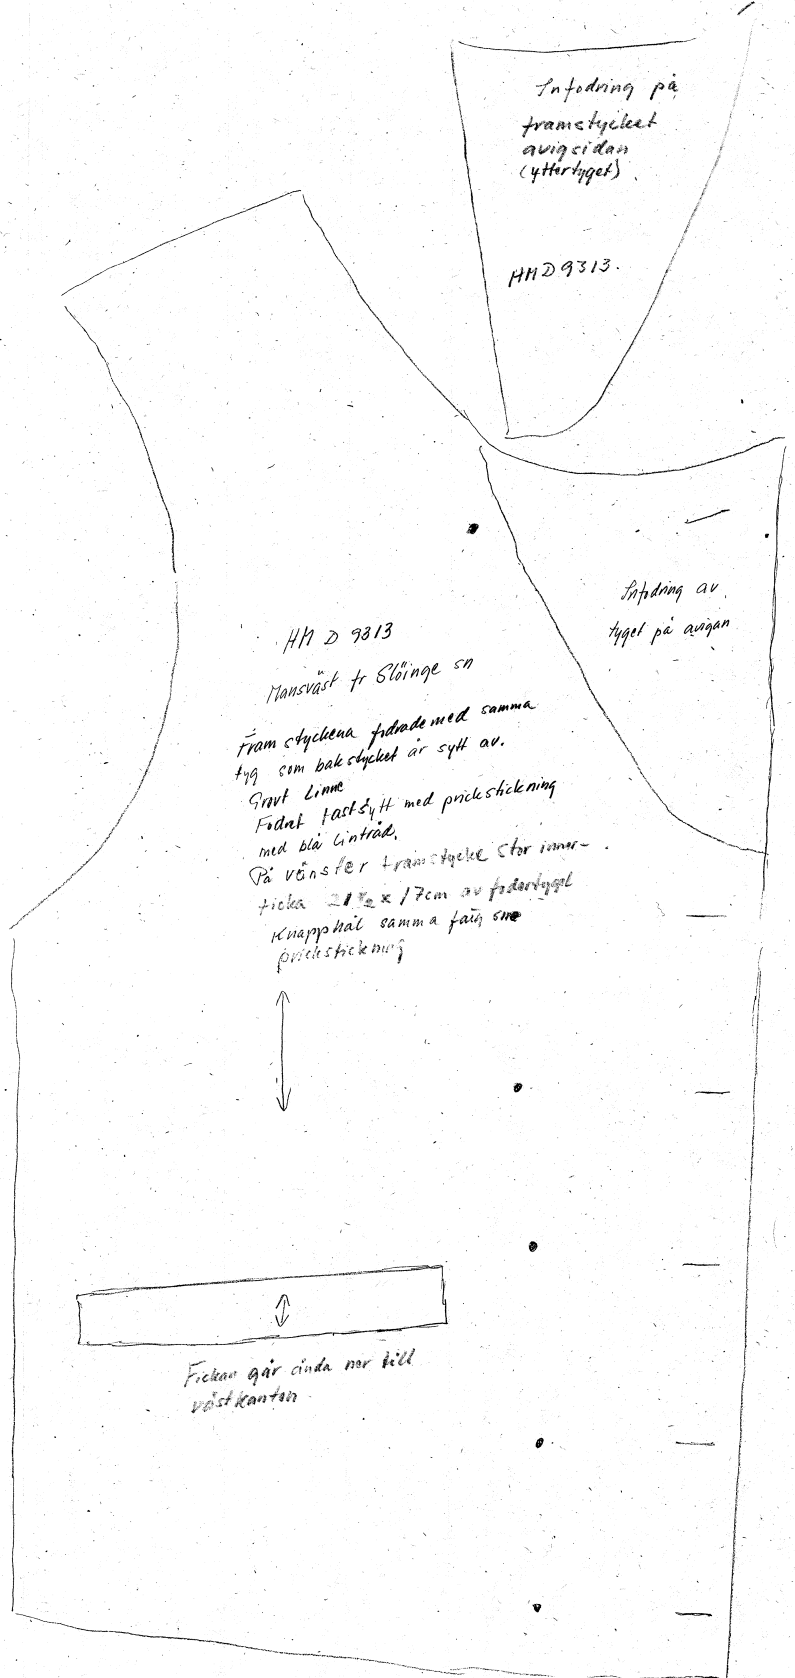 Infodring på
framstycket
avigsidan
(yttertyget).
HM D 9313.
Infodring av
tyget på avigan
HM D 9313
Mansväst fr Slöinge sn
Framstyckena fodrade med samma
tyg som bakstycket är sytt av.
Grovt Linne
Fodret fastsytt med prickstickning
med blå lintråd.
På vänster framstycke stor inner-
ficka 21 ½ x 17cm av fodertyget
Knapphål samma färg
prickstickning
Fickan går ända ner till
västkanten